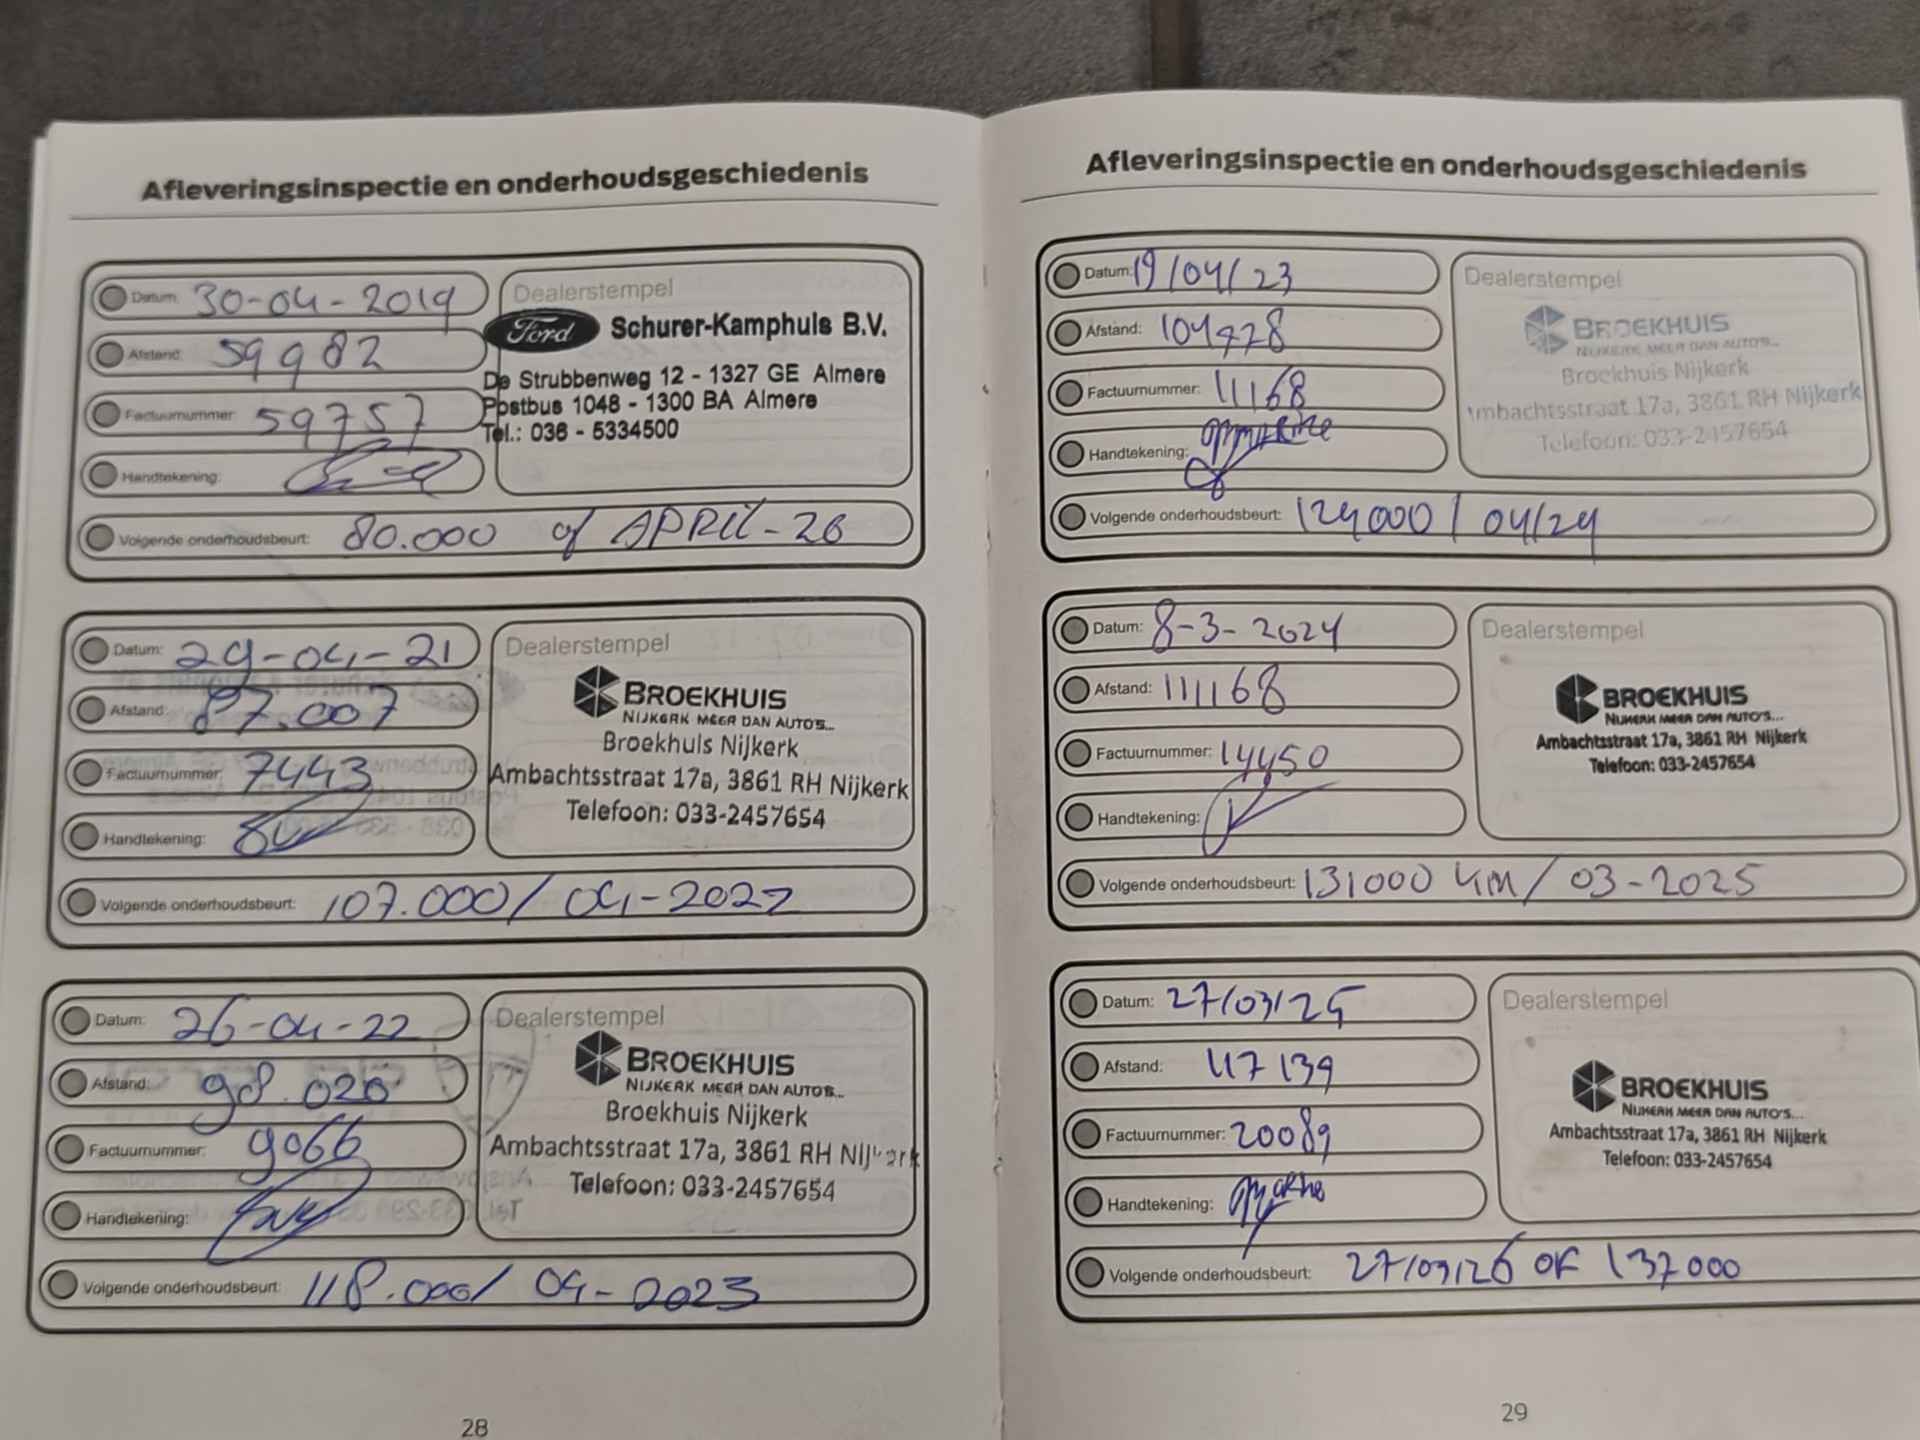 Afleveringsinspectie en onderhoudsgeschiedenis
Datum: 30-04-2019
Afstand: 59982
Factuurnummer: 59757
Handtekening:
Volgende onderhoudsbeurt: 80.000 of APRIL-20
Dealerstempel
Ford Schurer-Kamphuis B.V.
De Strubbenweg 12 - 1327 GE Almere
Postbus 1048 - 1300 BA Almere
Tel.: 036 - 5334500
Datum: 29-04-21
Afstand: 87.007
Factuurnummer: 7443
Handtekening:
Volgende onderhoudsbeurt: 107.000/ 04-2022
Dealerstempel
BROEKHUIS
NIJKERK MEER DAN AUTO'S...
Broekhuis Nijkerk
Ambachtsstraat 17a, 3861 RH Nijkerk
Telefoon: 033-2457654
Datum: 26-04-22
Afstand: 98.020
Factuurnummer: 9066
Handtekening:
Volgende onderhoudsbeurt: 118.000/ 04-2023
Dealerstempel
BROEKHUIS
NIJKERK MEER DAN AUTO'S...
Broekhuis Nijkerk
Ambachtsstraat 17a, 3861 RH Nijkerk
Telefoon: 033-2457654
28
Afleveringsinspectie en onderhoudsgeschiedenis
Datum: 19/04/23
Afstand: 104728
Factuurnummer: 11168
Handtekening:
Volgende onderhoudsbeurt: 124000 / 04/24
Dealerstempel
BROEKHUIS
NIJKERK MEER DAN AUTO'S...
Broekhuis Nijkerk
Ambachtsstraat 17a, 3861 RH Nijkerk
Telefoon: 033-2457654
Datum: 8-3-2024
Afstand: 111168
Factuurnummer: 14450
Handtekening:
Volgende onderhoudsbeurt: 131000 KM/ 03-2025
Dealerstempel
BROEKHUIS
NIJKERK MEER DAN AUTO'S...
Ambachtsstraat 17a, 3861 RH Nijkerk
Telefoon: 033-2457654
Datum: 27/03/25
Afstand: 117139
Factuurnummer: 20089
Handtekening:
Volgende onderhoudsbeurt: 27/03/26 OF 137000
Dealerstempel
BROEKHUIS
NIJKERK MEER DAN AUTO'S...
Ambachtsstraat 17a, 3861 RH Nijkerk
Telefoon: 033-2457654
29